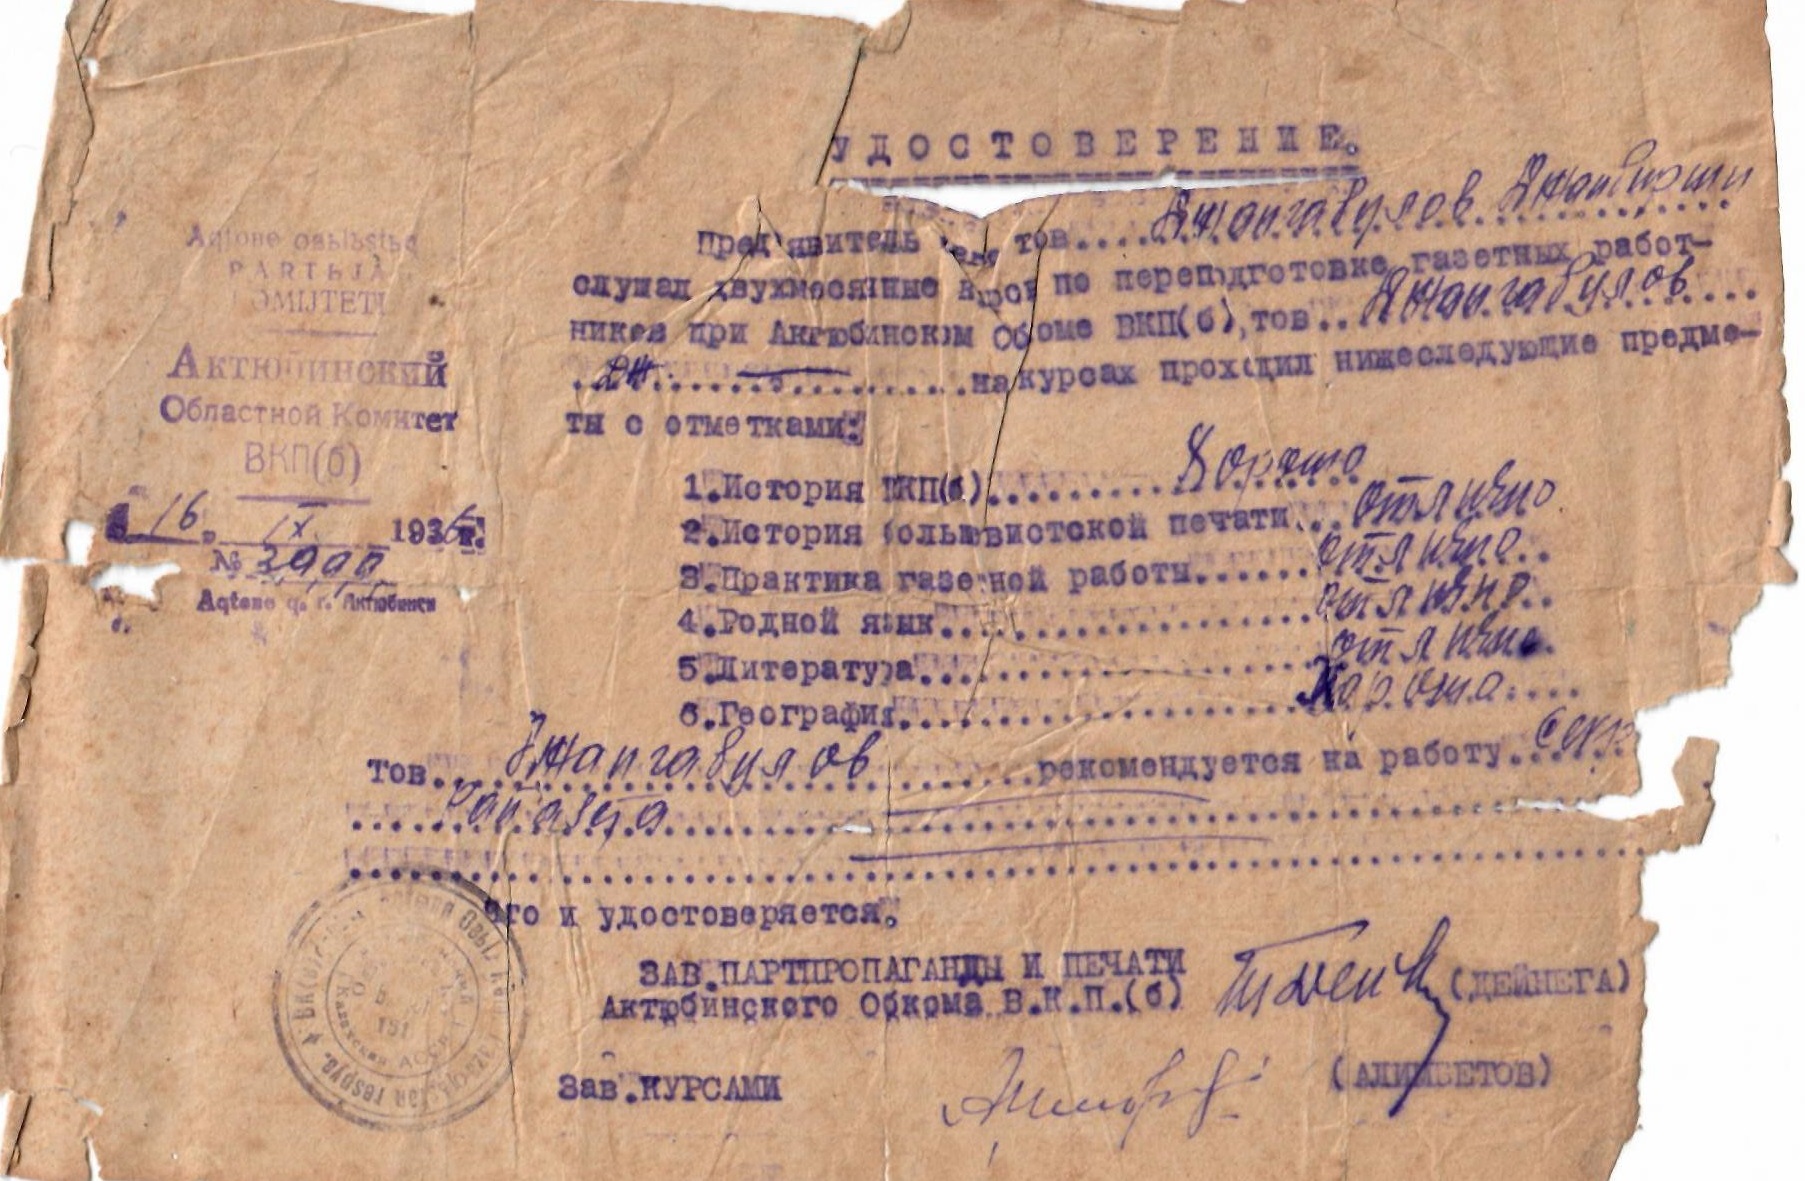 УДОСТОВЕРЕНИЕ.
Aqtөbe oвlьstьq
PARTЬJA
KOMIJTETI
АКТЮБИНСКИЙ
Областной Комитет
ВКП(б)
"16" IX 1936г.
№
Aqtөbe q. г. Актюбинск
Пред'явитель тов....Джангабулов
слушал двухмесячные курсы по переподготовке газетных работ-
ников при Актюбинском Обкоме ВКП(б),тов..Джангабулов....
.Дж...................на курсах проходил нижеследующие предме-
ты с отметками:
1.История ВКП(б)...........Хорошо
2.История большевистской печати...отлично
3.Практика газетной работы.......отлично..
4.Родной язык....................отлично..
5.Литература.....................отлично.
6.География......................Хорошо....
тов....Джангабулов..........рекомендуется на работу.
его и удостоверяется.
ЗАВ.ПАРТПРОПАГАНДЫ И ПЕЧАТИ
Актюбинского Обкома В.К.П.(б) (ДЕЙНЕГА)
Зав.КУРСАМИ (АЛИМБЕТОВ)
Казахская АССР